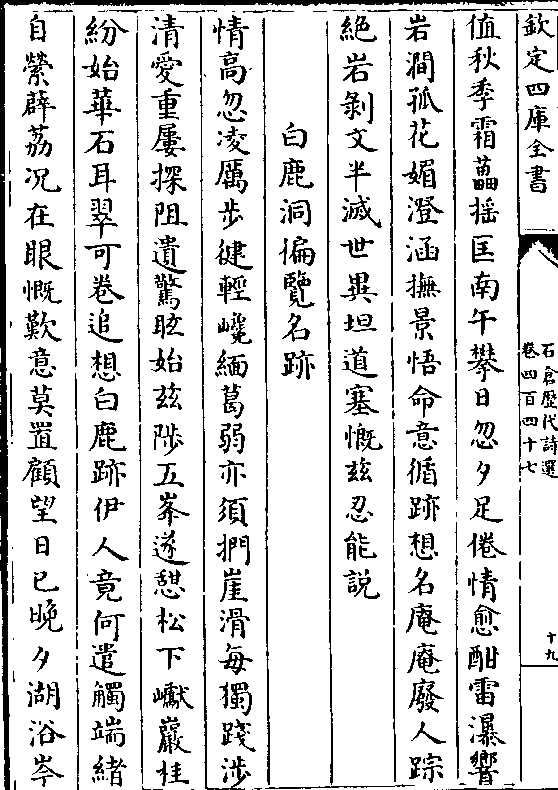 欽定四庫全書
石倉歷代詩選
卷四百四十七
十九
值秋季霜藟揺匡南午攀日忽夕足倦情愈酣雷瀑響
岩澗孤花媚澄涵撫景悟命意循跡想名庵庵廢人踪
絶岩剝文半滅世異坦道塞慨兹忍能説
白鹿洞徧覽名跡
情高忽凌厲歩健輕巉緬葛弱亦須捫崖滑每獨踐涉
清愛重屢探阻遺驚眩始兹陟五峯遂憇松下巘巖桂
紛始華石耳翠可卷追想白鹿跡伊人竟何遣觸端緒
自縈薜荔况在眼慨歎意莫置顧望日已晚夕湖浴岑